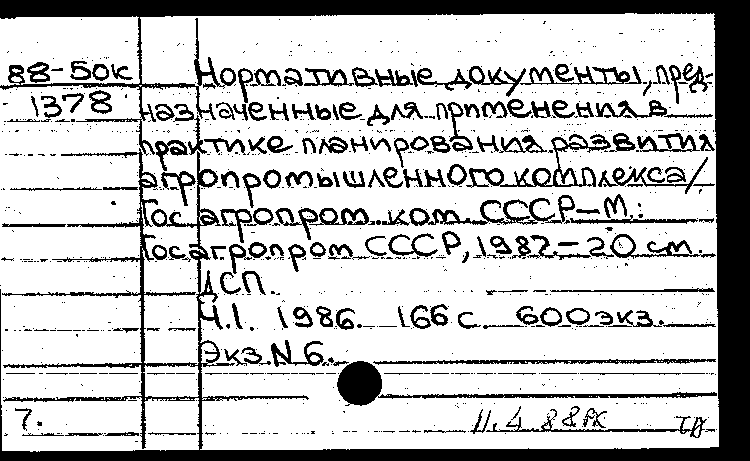 88-50к Нормативные документы, пред-
1378 назначенные для применения в
практике планирования развития
агропромышленного комплекса/
Гос агропром. ком. СССР.-М.:
Госагропром СССР, 1987.-20 см.
ДСП.
Ч.1. 1986. 166 с. 600экз.
Экз.N 6.
7. 11.4 88